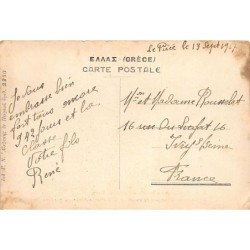 Le Pirée le 19 Sept 19
ΕΛΛΑΣ-(GRÈCE)
CARTE POSTALE
Je vous
embrasse bien
fort tous encore
942 jours et la
Classe
Votre fils
René
Mr et Madame
16 rue du
Ivry s/ Seine
France